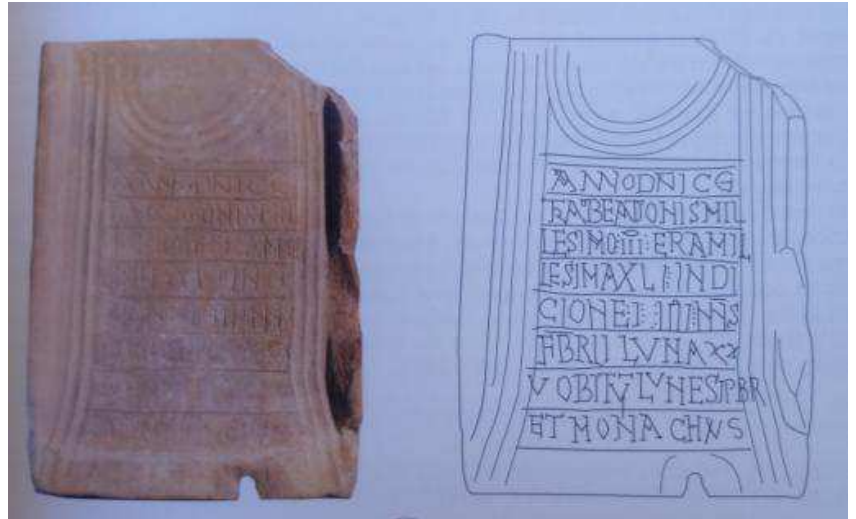 ANNODNICG
RABEATIONISMIL
LESIMO:III:ERAMIL
LESIMAXLI:INDI
CIONE:I
FBRII LVNAXX
V OBITV LVNESPBR
ET MONACHVS